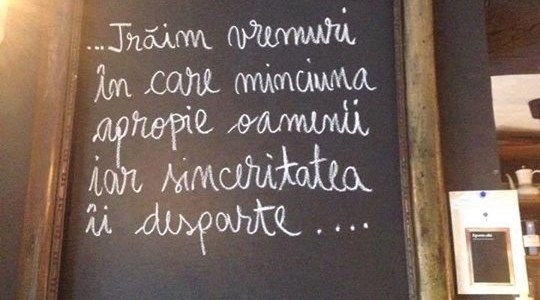 ...Trăim vremuri
în care minciuna
apropie oamenii
iar sinceritatea
îi desparte ....